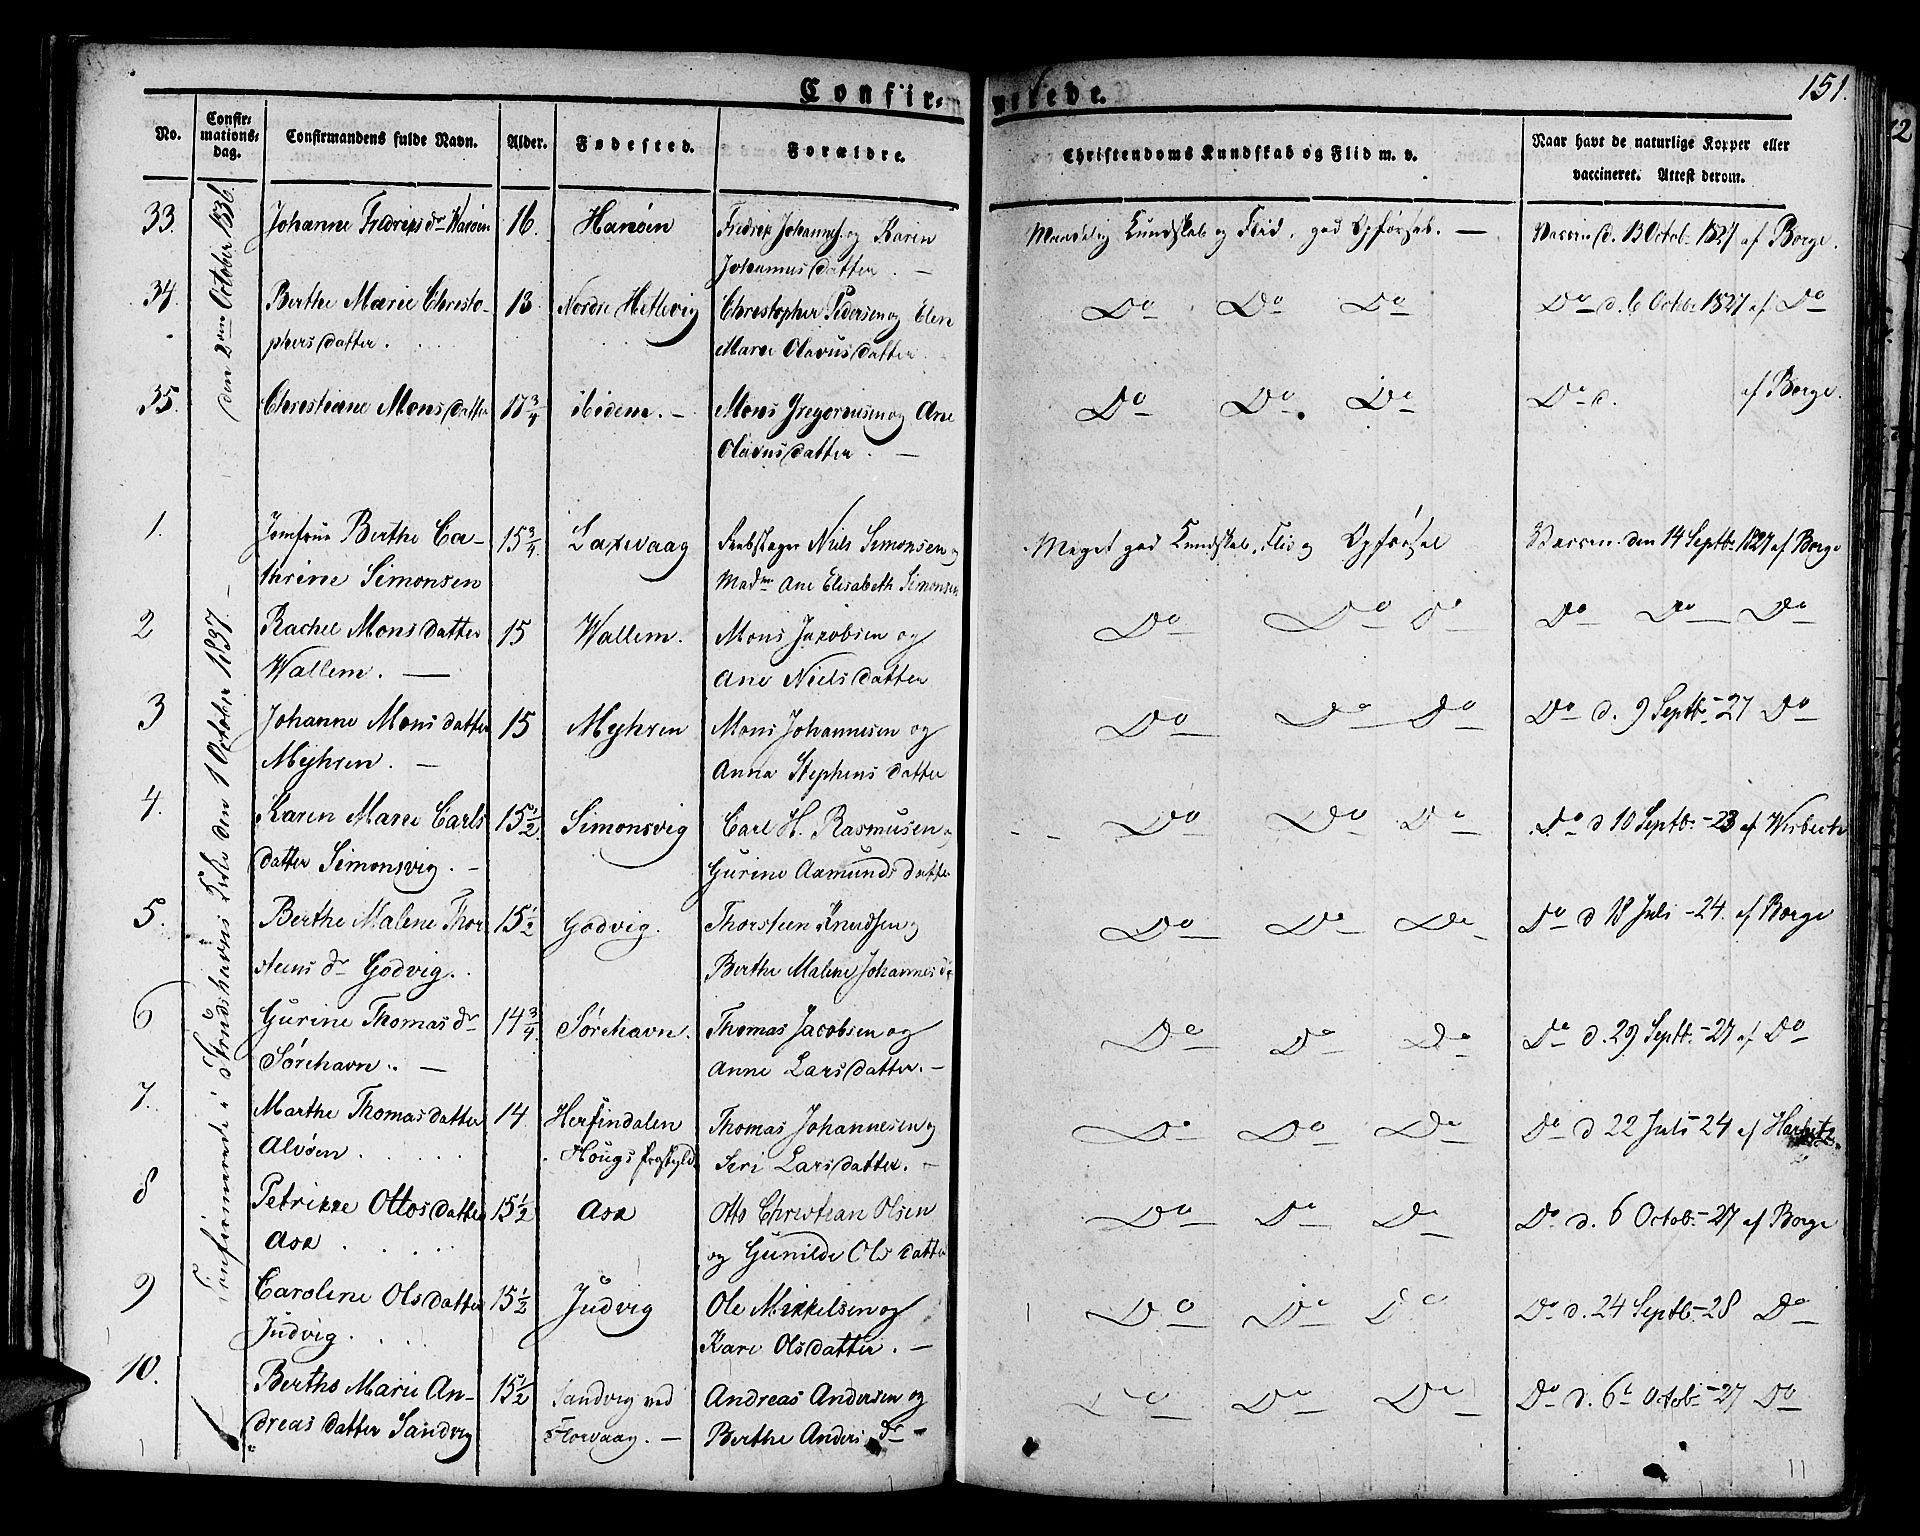 Confir- mерede.
151.
No.
Confir-
mations-
dag.
Confirmandens fulde Navn.
Alder.
Fødested.
Forældre.
Christendoms Kundskab og Flid m. v.
Naar havt de naturlige Kopper eller
vaccineret. Attest derom.
den 2den October 1836.
33. Johanne Fredriksdr Hanøen 16. Hanøen Fredrik Johannes. og Karin
Johannesdatter. —
Maadelig Kundskab og Flid, god Opførsel. — Vaccin. d. 13 Octob. 1827 af Borge.
34. Berthe Marie Christo- 18 Nordre Hetlevig Christopher Pedersen og Elen
phersdatter. Marie Olavusdatter.
Do Do Do Do d. 6 Octbr 1827 af Do
35. Christiane Monsdatter 17 3/4 ibidem. — Mons Gregoriusen og Ane
Olavusdatter. —
Do Do Do Do d. af Borge.
Confirmerede i Strudshavns Kirke den 1 October 1837. —
1. Jomfrue Berthe Ca- 15 3/4. Laxevaag Skibstager Niels Simonsen og
thrine Simonsen Madme Ane Elisabeth Simonsen
Meget god Kundskab, Flid og Opførsel Vaccin. den 14 Septb. 1827 af Borge
2 Rachel Monsdatter 15 Wallem. Mons Jacobsen og
Wallem. — Ane Nielsdatter
Do Do Do Do Do Do
3 Johanne Monsdatter 15 Myhren Mons Johannesen og
Myhren. — Anna Stephensdatter
Do Do Do Do d. 9 Septb. - 27 Do
4. Karen Marie Carls 15 1/2 Simonsvig Carl H. Rasmusen og
datter Simonsvig. — Gurine Aamundsdatter
Do Do Do Do d 10 Septb. - 23 af Wisbech
5. Berthe Malene Thor- 15 1/2 Godvig. Thorsteen Knudsen og
steens dr Godvig. Berthe Malene Johannesdr
Do Do Do Do d 18 Juli - 24. af Borge
6 Gurine Thomasdr 14 3/4 Sørehavn. Thomas Jacobsen og
Sørehavn. — Anne Larsdatter. —
Do Do Do Do d. 29 Septb. - 27 af Do
7. Marthe Thomasdatter 14 Herfindalen Thomas Johannesen og
Alvøen Hougs Præstegjeld Siri Larsdatter. —
Do Do Do Do d 22 Juli - 24 af
8 Petrikke Ottosdatter 15 1/2 Ask Otto Christian Olsen
Ask og Gunilde Olsdatter
Do Do Do Do d. 6 Octob. - 27 af Borge
9 Caroline Olsdatter 15 1/2 Judvig Ole Mikkelsen og
Judvig. Kari Olsdatter. —
Do Do Do Do d. 24 Septb - 28 Do
10. Berthe Marie An- 15 1/2 Sandvig ved Andreas Andersen og
dreasdatter Sandvig Florvaag. — Berthe Anders dr —
Do Do Do Do d. 6 Octob. - 27 Do